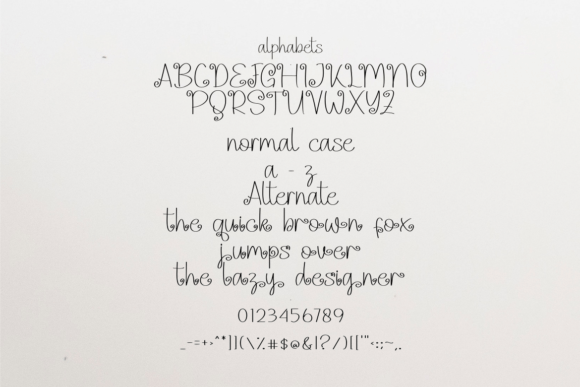 alphabets
ABCDEFGHIJKLMNO
PQRSTUVWXYZ
normal case
a - z
Alternate
the quick brown fox
jumps over
the lazy designer
0123456789
_-=+>^*]](\%#$@&|?/)[['"<:;~,.